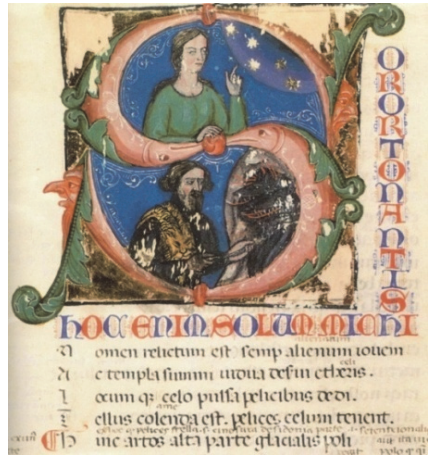 S
ORORTONANTIS
HOC ENIM SOLUM MICHI
N omen relictum est semp alienum iouem
A c templa summi uidua deserui etheris.
L ocum q; celo pulsa pelicibus dedi.
T ellus colenda est. pelices celum tenent.
h inc artos alta parte glacialis poli